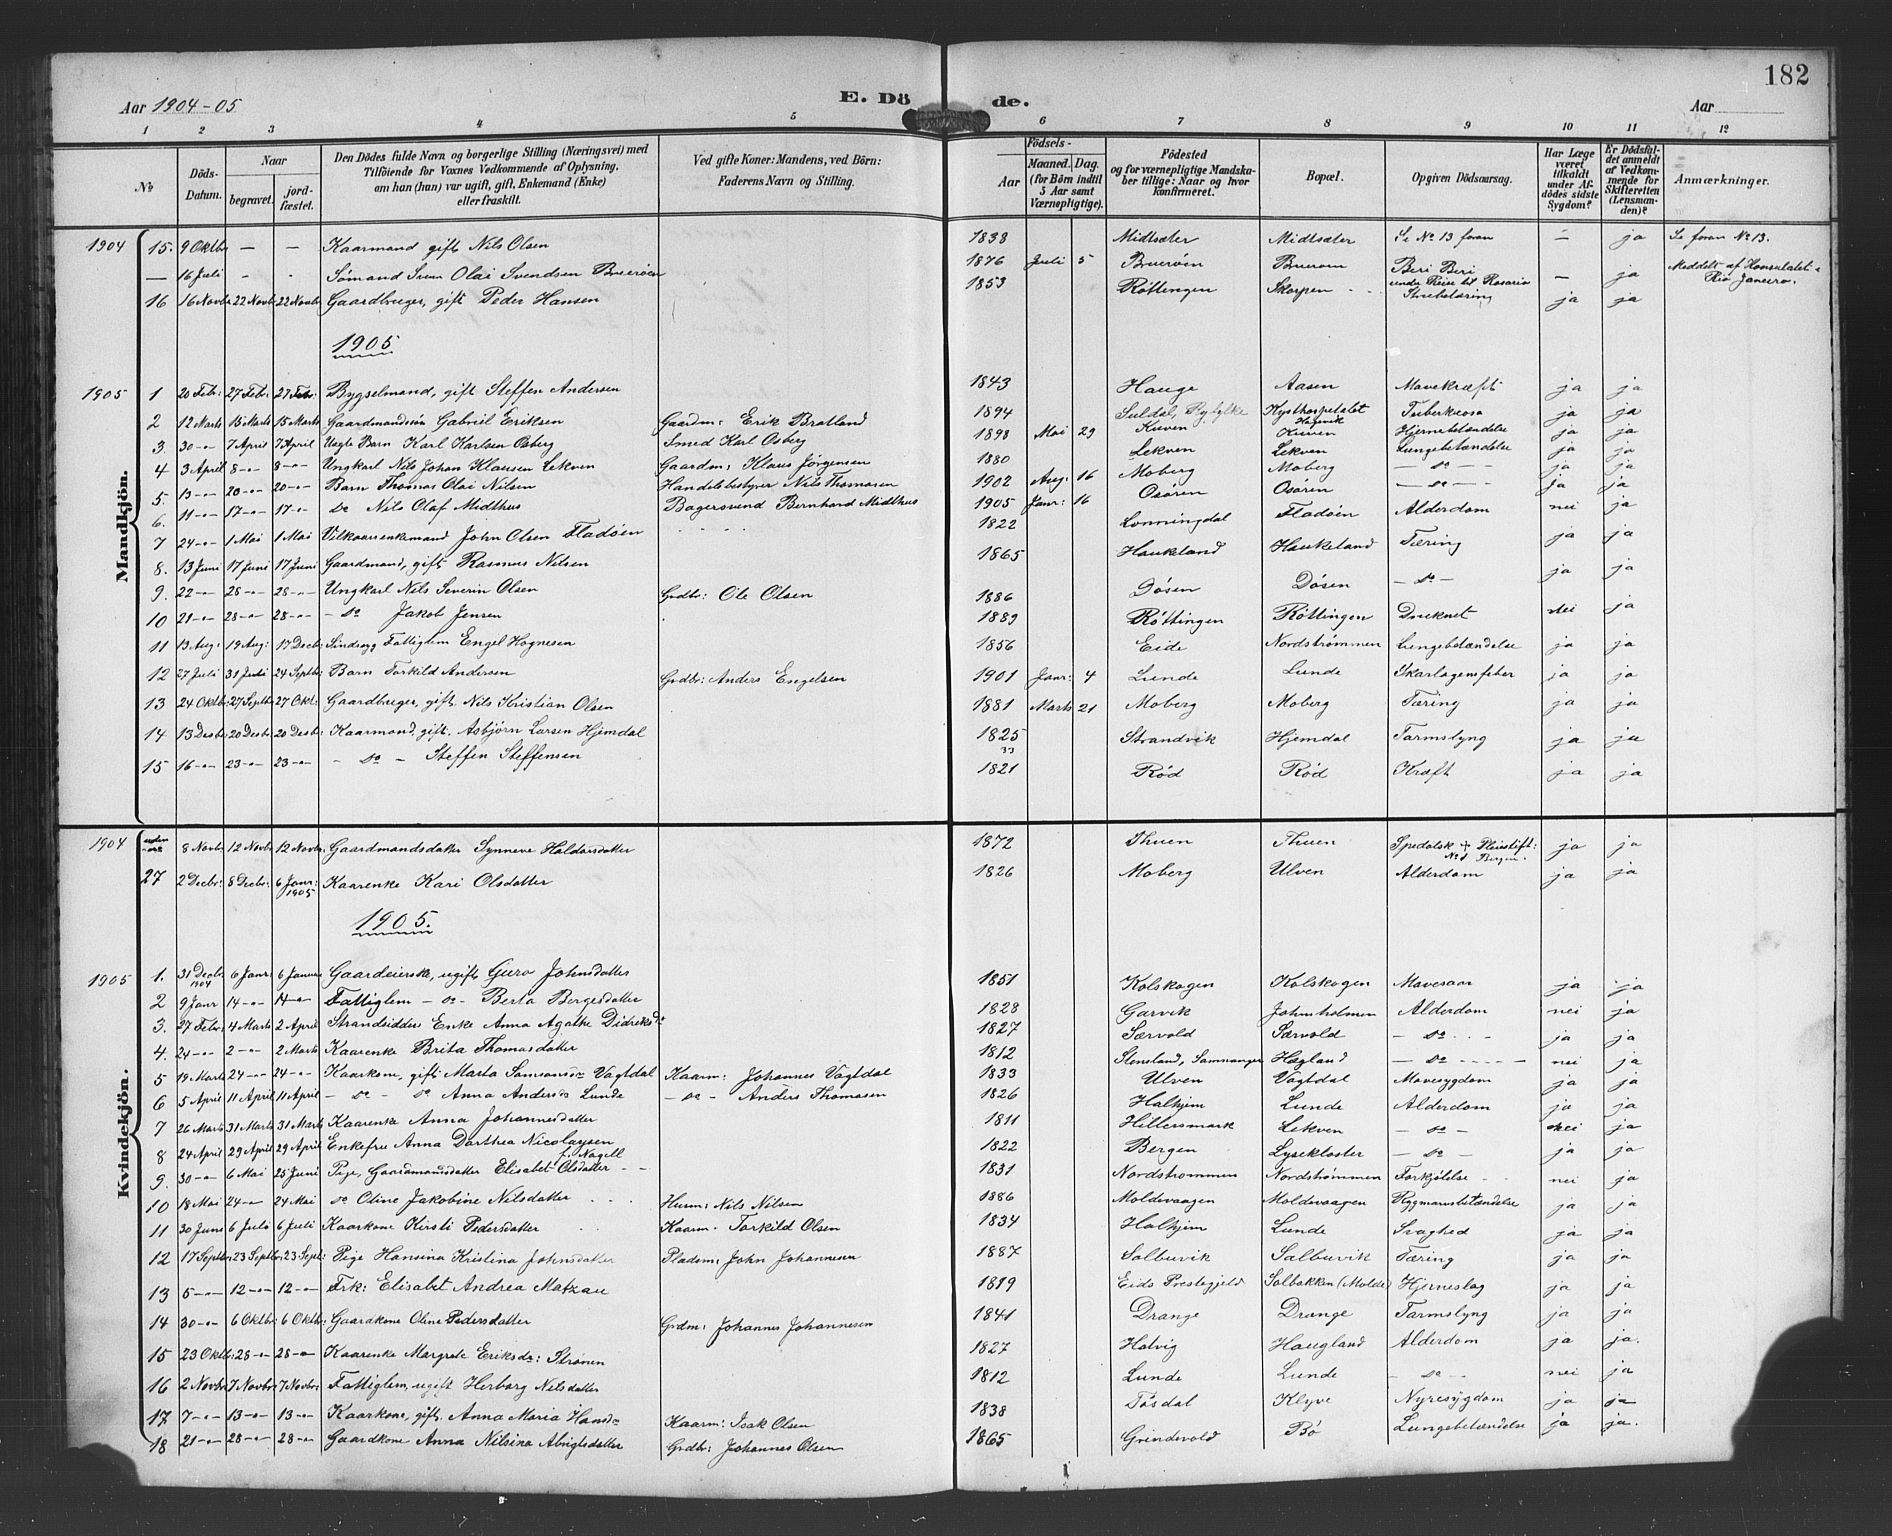 182
Aar 1904-05
E. Dö de.
Aar
1 2 3 4 5 6 7 8 9 10 11 12
№ Döds-Datum. Naar begravet. jord-fæstet. Den Dödes fulde Navn og borgerlige Stilling (Næringsvei) med Tilföiende for Voxnes Vedkommende af Oplysning, om han (hun) var ugift, gift, Enkemand (Enke) eller fraskilt. Ved gifte Koner: Mandens, ved Börn: Faderens Navn og Stilling. Födsels- Aar Maaned. Dag. (for Börn indtil 5 Aar samt Værnepligtige). Födested og for værnepligtige Mandska-ber tillige: Naar og hvor konfirmeret. Bopæl. Opgiven Dödsaarsag. Har Læge været tilkaldt under Af-dödes sidste Sygdom? Er Dödsfal-det anmeldt af Vedkom-mende for Skifteretten (Lensman-den)? Anmærkninger.
Mandkjön.
1904 15. 9 Oktbr — — Kaarmand gift Nils Olsen 1838 Midtsæter Midtsæter Se No 13 foran — ja Se foran No 13.
— 16 Juli - - Sömand Sven Olai Svendsen Bruerøen 1876 Juli 5 Bruerøen Bruerøen Beri Beri under Reise til Rosario — ja Meddelt af Konsulatet i Rio Janeiro.
16 16 Novbr 22 Novbr 22 Novbr Gaardbruger, gift Peder Hansen 1853 Røttingen Skorpen Strubetæring ja ja
1905
1905 1 20 Febr: 27 Febr: 27 Febr: Bygselmand, gift Steffen Andersen 1843 Hauge Aasen Mavekræft ja ja
2 12 Marts 15 Marts 15 Marts Gaardmandssön Gabriel Eriksen Gaardm: Erik Bratland 1894 Suldal, Ryfylke Kysthospitalet Hagevik Tuberkulosa ja ja
3. 30 -"- 7 April 7 April Uægte Barn Karl Karlsen Osberg Smed Karl Osberg 1898 Mai 29 Kuven Kuven Hjernebetændelse ja ja
4 3 April 8 -"- 8 -"- Ungkarl Nils Johan Klausen Lekven Gaardm: Klaus Jørgensen 1880 Lekven Lekven Lungebetændelse ja ja
5. 13 -"- 20 -"- 20 -"- Barn Thomas Olai Nilsen Handelsbestyrer Nils Thomasen 1902 Aug: 16 Moberg Moberg — do — ja ja
6. 11 -"- 17 -"- 17 -"- do Nils Olaf Midthus Bagersvend Bernhard Midthus 1905 Janr: 16 Osøren Osøren — do — ja ja
7 24 -"- 1 Mai 1 Mai Vilkaarsenkemand John Olsen Fladøen 1822 Lønningdal Fladøen Alderdom nei ja
8. 13 Juni 17 Juni 17 Juni Gaardmand, gift Rasmus Nilsen 1865 Haukeland Haukeland Tæring ja ja
9. 22 -"- 28 -"- 28 -"- Ungkarl Nils Severin Olsen Grdbr: Ole Olsen 1886 Døsen Døsen — do — ja ja
10 21 -"- 28 -"- 28 -"- — do Jakob Jensen 1889 Røttingen Røttingen Druknet nei ja
11 13 Aug: 19 Aug: 17 Decbr: Sindssyg Fattiglem Engel Hognesen 1856 Eide Nordstrømmen Lungebetændelse ja ja
12 27 Juli 31 Juli 24 Septbr: Barn Torkild Andersen Grdbr: Anders Engelsen 1901 Janr: 4 Lunde Lunde Skarlagensfeber ja ja
13 24 Oktbr: 27 Septbr 27 Okt: Gaardbruger, gift Nils Kristian Olsen 1881 Marts 21 Moberg Moberg Tæring ja ja
14 13 Desbr: 20 Desbr: 20 Desbr: Kaarmand, gift. Asbjørn Larsen Hjemdal 1825 33 Strandvik Hjemdal Tarmslyng ja ja
15 16 -"- 23 -"- 23 -"- — do — Steffen Steffensen 1821 Rød Rød Kræft ja ja
Kvindekjön.
1904 uden 8 Novbr 12 Novbr 12 Novbr: Gaardmandsdatter Synneve Haldorsdatter 1872 Thuen Thuen Spedalsk + Pleiestift: No 1 Bergen. ja ja
27 2 Decbr: 8 Decbr: 6 Janr: 1905 Kaarenke Kari Olsdatter 1826 Moberg Ulven Alderdom ja ja
1905.
1905 1. 31 Decbr 1904 6 Janr: 6 Januar Gaardeierske, ugift Guro Johnsdatter 1851 Kolskogen Kolskogen Mavesaar ja ja
2 9 Janr 14 -"- 14 -"- Fattiglem — do — Berta Bergesdatter 1828 Garvik Johnholmen Alderdom nei ja
3. 27 Febr 4 Marts 2 April Strandsidders Enke Anna Agathe Didriksdr 1827 Særvold Særvold — do - - - ja ja
4. 24 -"- 2 -"- 2 Marts Kaarenke Brita Thomasdatter 1812 Stensland, Samnanger Hægland — do - - - nei ja
5 19 Marts 24 -"- 24 -"- Kaarkone, gift Marta Samsonsdr Vagtdal Kaarm: Johannes Vagtdal 1833 Ulven Vagtdal Mavesygdom ja ja
6 5 April 11 April 11 April — do — do Anna Andersdr Lunde — do — Anders Thomasen 1826 Halhjem Lunde Alderdom ja ja
7 26 Marts 31 Marts 31 Marts Kaarenke Anna Johannesdatter 1811 Hillersmark Lekven — do — nei ja
8 24 April 29 April 29 April Enkefru Anna Dorthea Nicolaysen f. Nagell 1822 Bergen Lysekloster — do — ja ja
9. 30 -"- 6 Mai 25 Juni Pige, Gaardmandsdatter Elisabet Olsdatter 1831 Nordstrømmen Nordstrømmen Forkjølelse nei ja
10 18 Mai 24 -"- 24 Mai do Oline Jakobine Nilsdatter Husm: Nils Nilsen 1886 Moldevaagen Moldevaagen Rygmarvsbetændelse ja ja
11 30 Juni 6 Julo 6 Juli Kaarkone Kirsti Pedersdatter Kaarm. Torkild Olsen 1834 Halhjem Lunde Svaghed ja ja
12 17 Septbr 23 Septbr: 23 Sept: Pige Hansina Kristina Johnsdatter Pladsm: John Johannesen 1887 Salbuvik Salbuvik Tæring ja ja
13 5 -"- 12 -"- 12 -"- Frk: Elisabet Andrea Matzau 1819 Eids Prestegjeld Solbakken (Molde) Hjerneslag ja ja
14 30 -"- 6 Oktbr: 6 Oktbr: Gaardkone Oline Pedersdatter Grdm: Johannes Johannesen 1841 Drange Drange Tarmslyng ja ja
15 23 Oktbr: 28 -"- 28 -"- Kaarenke Margrete Eriksdr: Strønen 1827 Hatvig Haugland Alderdom ja ja.
16 2 Novbr 7 Novbr: 7 Novbr: Fattiglem, ugift Herborg Nilsdatter 1812 Lunde Lunde — do — nei ja
17 7 -"- 13 -"- 13 -"- Kaarkone, gift. Anna Maria Hansdr Kaarm: Isak Olsen 1838 Tøsdal Klyve Nyresygdom ja ja
18 21 -"- 28 -"- 28 -"- Gaardkone Anna Nilsina Abrigtsdatter Grdbr: Johannes Olsen 1865 Grindevold Bø Lungebetændelse ja ja.